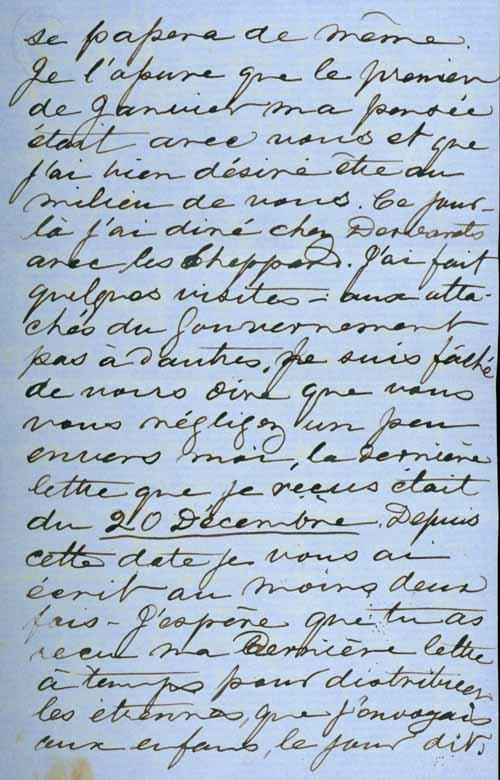 se passera de même.
Je t'assure que le premier
de Janvier ma pensée
était avec vous et que
j'ai bien désiré être au
milieu de vous. Ce jour-
là j'ai diné chez
avec les Sheppard. J'ai fait
quelques visites - aux atta-
chés du Gouvernement
pas à d'autres. Je suis fâché
de vous dire que vous
vous négligez un peu
envers moi, la dernière
lettre que je reçus était
du 20 Décembre. Depuis
cette date je vous ai
écrit au moins deux
fois - J'espère que tu as
recu ma dernière lettre
à temps pour distribuer
les étrennes, que j'envoyais
aux enfans, le jour dit.